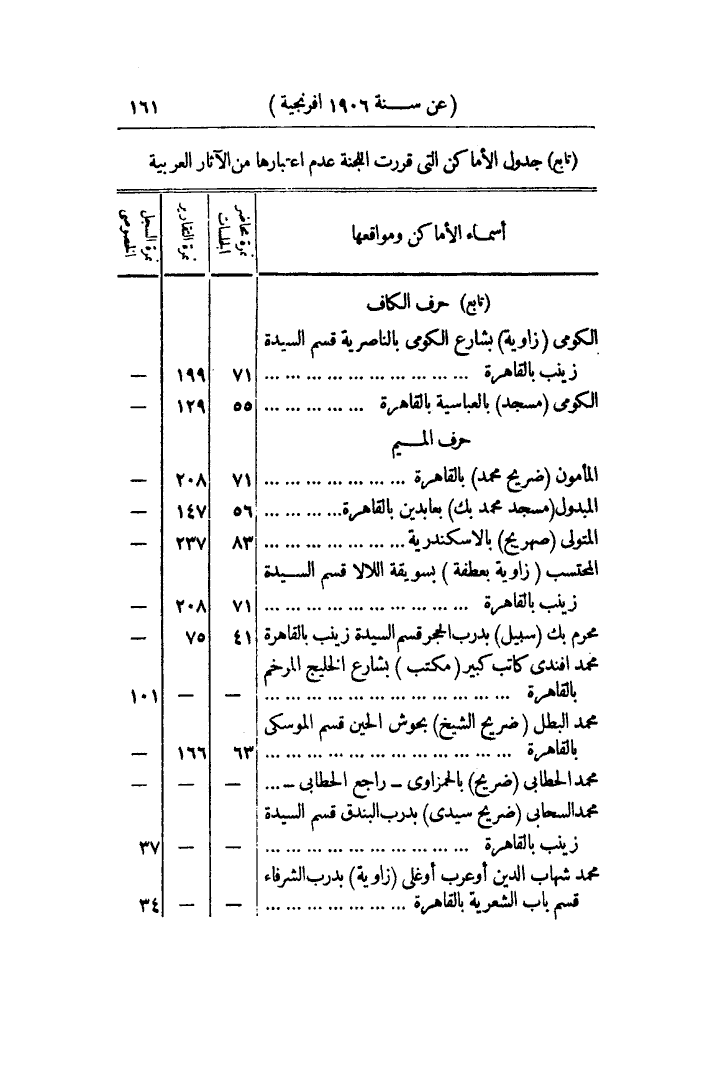 (عن سنة ١٩٠٦ افرنجية) ١٦١
(تابع) جدول الأماكن التى قررت اللجنة عدم اعتبارها من الآثار العربية
أسماء الأماكن ومواقعها | نمرة محاضر الجلسات | نمرة التقارير | نمرة السجل الخصوصى
(تابع) حرف الكاف
الكومى (زاوية) بشارع الكومى بالناصرية قسم السيدة
زينب بالقاهرة ... ... ... ... ... ... ... ... ... ... ٧١ ١٩٩ —
الكومى (مسجد) بالعباسية بالقاهرة ... ... ... ... ... ٥٥ ١٢٩ —
حرف الميم
المأمون (ضريح محمد) بالقاهرة ... ... ... ... ... ... ... ٧١ ٢٠٨ —
المبدول (مسجد محمد بك) بعابدين بالقاهرة... ... ... ... ٥٦ ١٤٧ —
المتولى (صهريج) بالاسكندرية ... ... ... ... ... ... ... ٨٣ ٢٣٧ —
المحتسب (زاوية بعطفة) بسويقة اللالا قسم السيدة
زينب بالقاهرة ... ... ... ... ... ... ... ... ... ... ٧١ ٢٠٨ —
محرم بك (سبيل) بدرب الحجر قسم السيدة زينب بالقاهرة ٤١ ٧٥ —
محمد افندى كاتب كبير (مكتب) بشارع الخليج المرخم
بالقاهرة ... ... ... ... ... ... ... ... ... ... ... ... — — ١٠١
محمد البطل (ضريح الشيخ) بحوش الحين قسم الموسكى
بالقاهرة ... ... ... ... ... ... ... ... ... ... ... ... ٦٣ ١٦٦ —
محمد الحطابى (ضريح) بالحمزاوى – راجع الحطابى – ... — — —
محمد السحابى (ضريح سيدى) بدرب البندق قسم السيدة
زينب بالقاهرة ... ... ... ... ... ... ... ... ... ... — — ٣٧
محمد شهاب الدين أوعرب أوغلى (زاوية) بدرب الشرفاء
قسم باب الشعرية بالقاهرة ... ... ... ... ... ... ... — — ٣٤